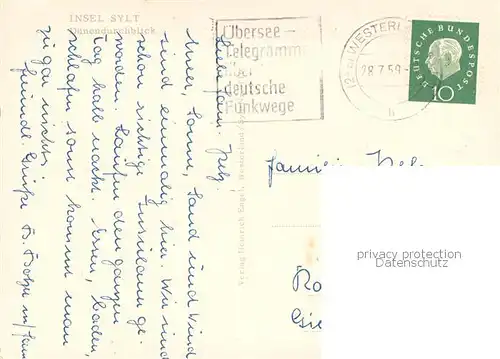 INSEL SYLT
Dünendurchblick
Übersee -
Telegramme
über
deutsche
Funkwege
WESTERL
28.7.59-
b
DEUTSCHE BUNDESPOST
10
Liebe Fam.
Meer, Sonne, Sand und Wind
sind einmalig hier. Wir sind
schon richtige Insulaner ge-
worden. Laufen den ganzen
Tag halb nackt. Essen, baden,
schlafen sonst kommt man
zu gar nichts.
Freundl. Grüße
Verlag Heinrich Engel, Westerland/Sylt
Familie
privacy protection
Datenschutz